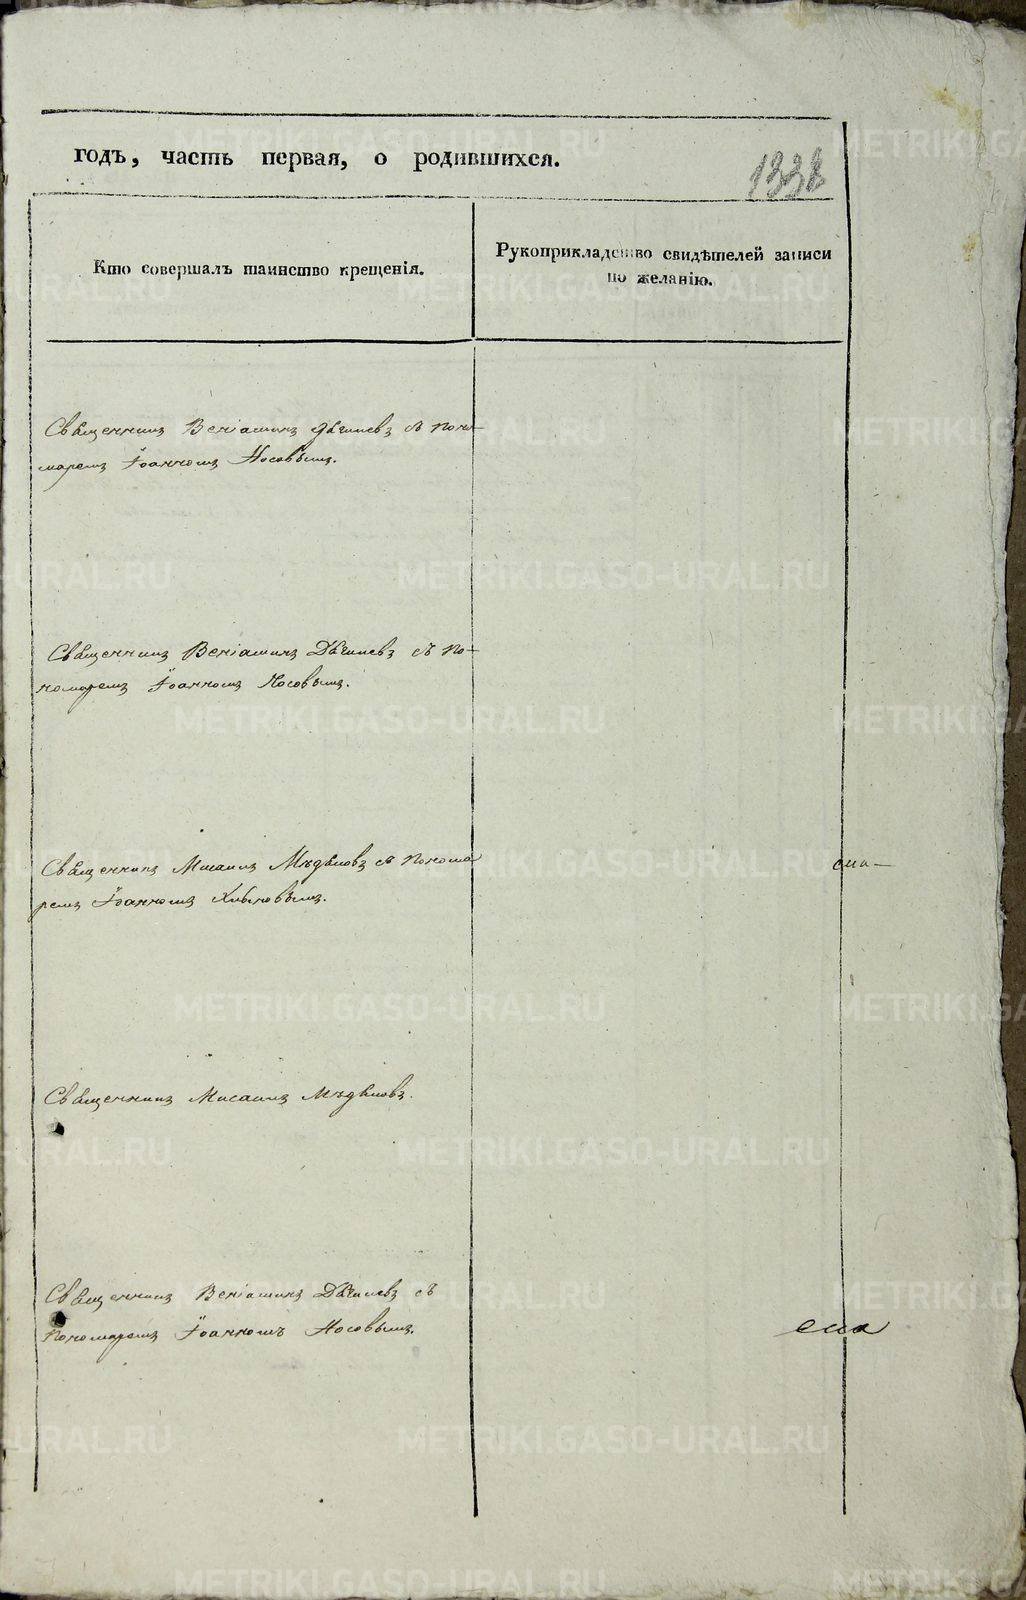 годъ, часть первая, о родившихся.
133
Кто совершалъ таинство крещенія.
Рукоприкладство свидѣтелей записи
по желанію.
Священникъ Веніаминъ съ поно-
маремъ Іоанномъ Носовымъ.
Священникъ Веніаминъ съ по-
номаремъ Іоанномъ Носовымъ.
Священникъ Мисаилъ съ понома
ремъ Іоанномъ
Священникъ Мисаилъ
Священникъ Веніаминъ съ
пономаремъ Іоанномъ Носовымъ.
METRIKI.GASO-URAL.RU